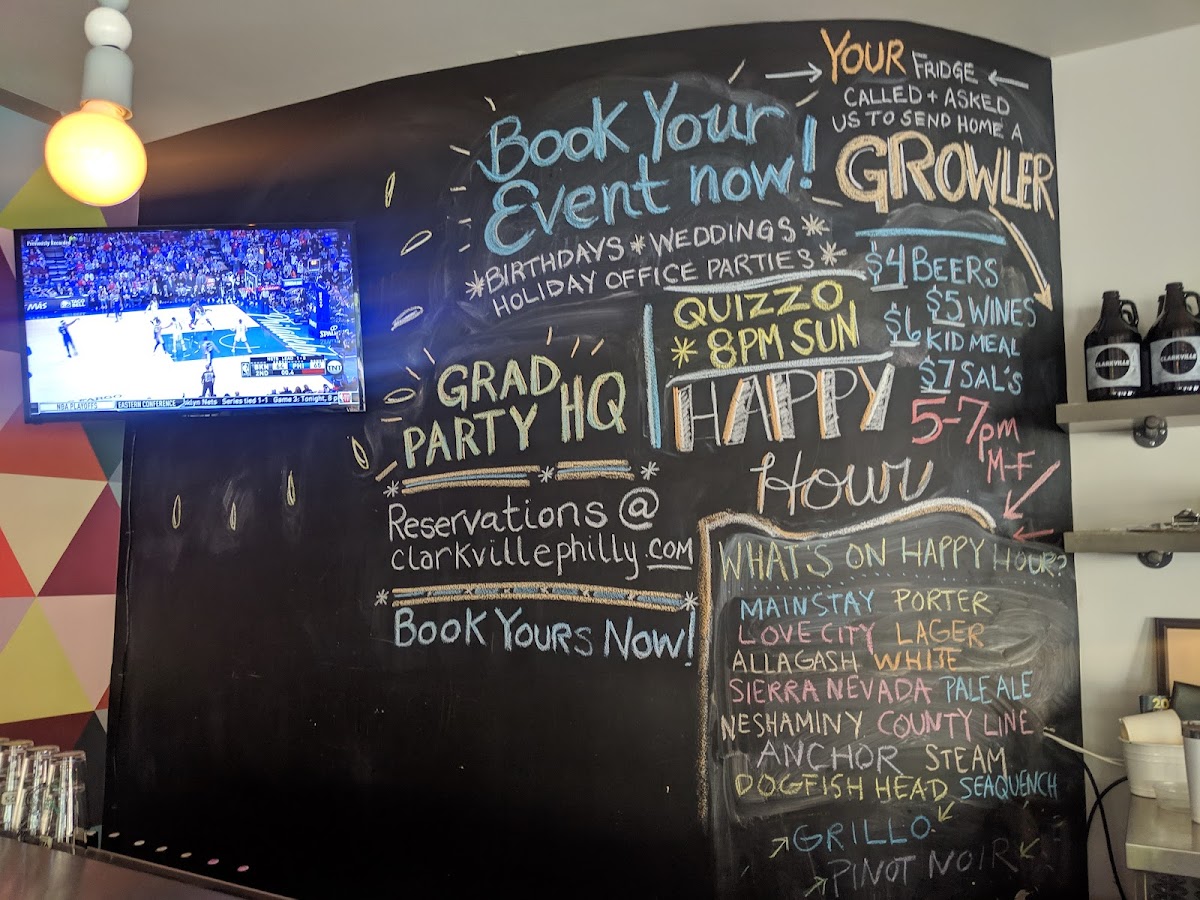 YOUR FRIDGE
CALLED + ASKED
US TO SEND HOME A
GROWLER
BOOK YOUR
EVENT NOW!
*BIRTHDAYS * WEDDINGS *
HOLIDAY OFFICE PARTIES *
$4 BEERS
$5 WINES
$6 KID MEAL
$7 SAL'S
5-7pm
M-F
QUIZZO
* 8PM SUN
HAPPY
Hour
GRAD
PARTY HQ
RESERVATIONS @
clarkvillephilly.com
BOOK YOURS NOW!
WHAT'S ON HAPPY HOUR?
MAINSTAY PORTER
LOVE CITY LAGER
ALLAGASH WHITE
SIERRA NEVADA PALE ALE
NESHAMINY COUNTY LINE
ANCHOR STEAM
DOGFISH HEAD SEAQUENCH
GRILLO
PINOT NOIR
CLARKVILLE
NBA PLAYOFFS
EASTERN CONFERENCE
Series tied 1-1
Game 3: Tonight, 8
BKN
PHI
2ND
TNT
SPALDING